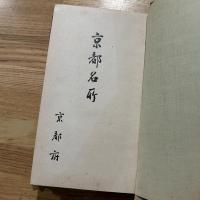 京都名所
京都府